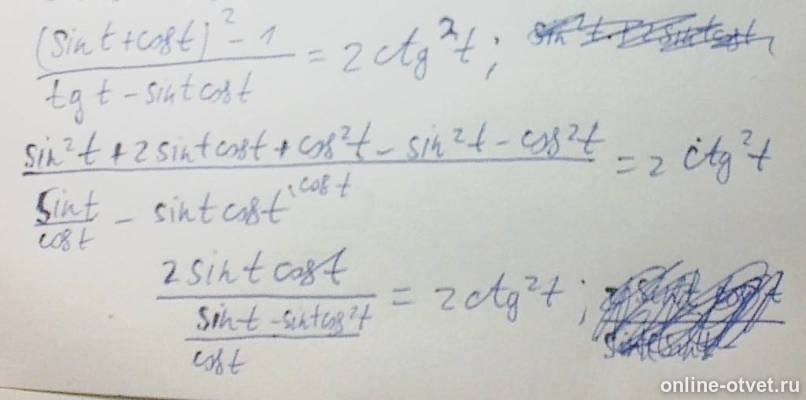 (sin t + cos t)² - 1 / tg t - sin t cos t = 2 ctg² t ;
sin² t + 2 sin t cos t + cos² t - sin² t - cos² t / sin t / cos t - sin t cos t \ cos t = 2 ctg² t
2 sin t cos t / sin t - sin t cos² t / cos t = 2 ctg² t ;
online-otvet.ru